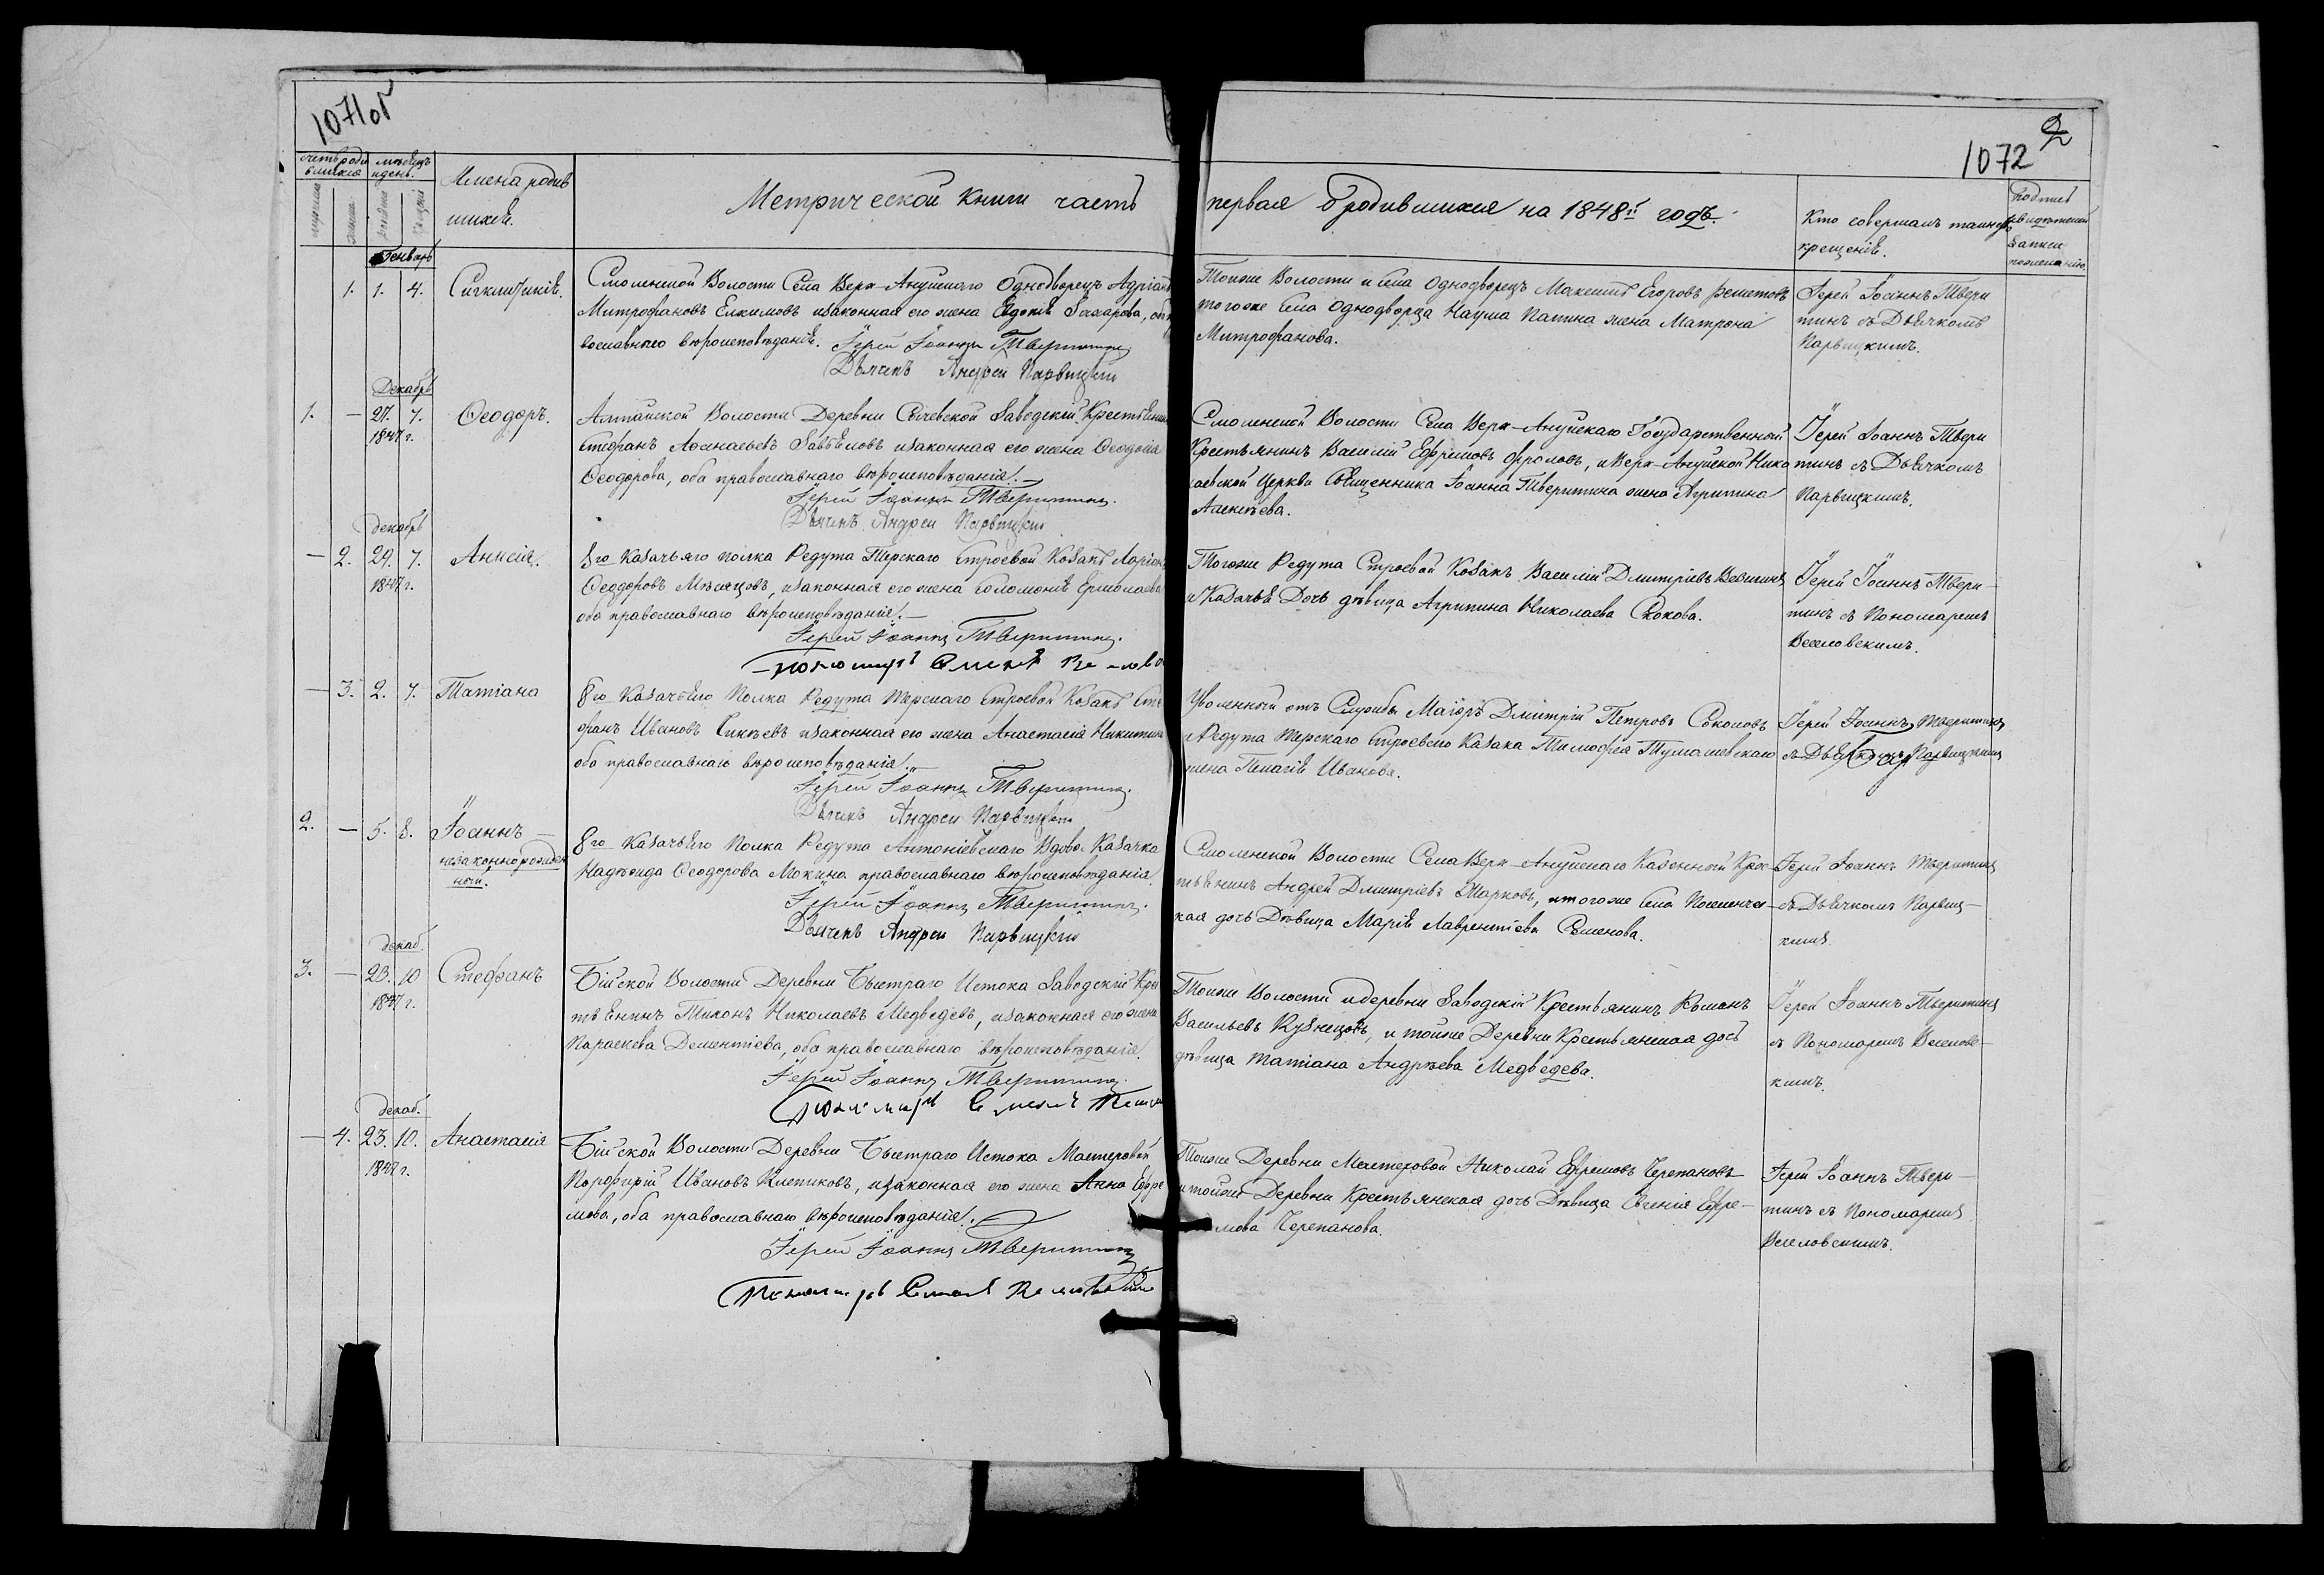 1071об
1072
2
счетъ роди
вшихся
мѣсяцъ
и день.
Имена родив
шихся.
Метрической книги часть
первая о родившихся на 1848й годъ.
Кто совершалъ таинство
крещенія.
Генварь
1. 1. 4. Сигклитикія.
Смоленской Волости Села Верх-Ануйскаго Однодворецъ Адріанъ
Митрофановъ Екимовъ изаконная его жена Евдокія Захарова,
вославнаго вѣроисповѣданія. Іерей Іоаннъ Тверитинъ
Дьячекъ Андрей Парвицкій
Тоиже Волости и села Однодворецъ Максимъ Егоровъ Решетовъ
тогоже Села Однодворца Наума Папина жена Матрона
Митрофанова.
Іерей Іоаннъ Твери
тинъ съ Дьячкомъ
Парвицкимъ.
Декабрь
1. — 27. 7. Ѳеодоръ.
1847 г.
Алтайской Волости Деревни Сычевской Заводскій Крестьянинъ
Стефанъ Аѳанасьевъ Завьяловъ изаконная его жена Ѳеодосія
Ѳеодорова, оба православнаго вѣроисповѣданія.
Іерей Іоаннъ Тверитинъ.
Дьячекъ Андрей Парвицкій
Смоленской Волости Села Верх-Ануйскаго Государственной
Крестьянинъ Василій Ефремовъ Фроловъ, и Верх-Ануйской Нико
лаевской Церкви Священника Іоанна Тверитина жена Агрипина
Алексѣева.
Іерей Іоаннъ Твери
тинъ съ Дьячкомъ
Парвицкимъ.
декабрь
— 2. 29. 7. Анисія.
1847 г.
8го Казачьяго полка Редута Терскаго Строевой Козакъ Ларіонъ
Ѳеодоровъ Мѣсяцовъ, изаконная его жена Соломонія Ермолаева
оба православнаго вѣроисповѣданія. —
Іерей Іоаннъ Тверитинъ.
Пономарь
Тогоже Редута Строевой Козакъ Василій Дмитріевъ
и Казачья Дочь дѣвица Агрипина Николаева Скокова.
Іерей Іоаннъ Твери-
тинъ съ Пономаремъ
Веселовскимъ.
— 3. 2. 7. Татіана
8го Казачьяго Полка Редута Терскаго Строевой Козакъ Сте
фанъ Ивановъ изаконная его жена Анастасія Никитина
оба православнаго вѣроисповѣданія.
Іерей Іоаннъ Тверитинъ.
Дьячекъ Андрей Парвицкій
Уволенный отъ Службы Маіоръ Дмитрій Петровъ Соколовъ
и Редута Терскаго Строеваго Казака Тимофея Тумашевскаго
жена Пелагія Иванова.
Іерей Іоаннъ Тверитинъ
съ Дьячкомъ Парвицкимъ
2. — 5. 8. Іоаннъ —
незаконнорожден
ный.
8го Казачьяго Полка Редута Антоніевскаго Вдова Казачка
Надежда Ѳеодорова Мокина православнаго вѣроисповѣданія.
Іерей Іоаннъ Тверитинъ.
Дьячекъ Андрей Парвицкій
Смоленской Волости Села Верх-Ануйскаго Казенной Крес-
тьянинъ Андрей Дмитріевъ Марковъ, итогоже Села
кая дочь Дѣвица Марія Лаврентіева Семенова.
Іерей Іоаннъ Тверитинъ
съ Дьячкомъ Парвиц-
кимъ.
декаб.
3. — 23. 10 Стефанъ
1847 г.
Бійской Волости Деревни Быстраго Истока Заводскій Крес
тьянинъ Тихонъ Николаевъ Медведевъ, изаконная его жена
Параскева Дементіева, оба православнаго вѣроисповѣданія.
Іерей Іоаннъ Тверитинъ.
Пономарь
Тоиже Волости идеревни Заводскій Крестьянинъ Романъ
Васильевъ Кузнецовъ, и тойже Деревни Крестьянская дочь
дѣвица Татіана Андрѣева Медведева.
Іерей Іоаннъ Тверитинъ
съ Пономаремъ Веселовс-
кимъ.
декаб.
— 4. 23. 10. Анастасія
1847 г.
Бійской Волости Деревни Быстраго Истока Мастеровой
Порфирій Ивановъ Клепиковъ, изаконная его жена Анна Ефре
мова, оба православнаго вѣроисповѣданія.
Іерей Іоаннъ Тверитинъ
Пономарь
Тоиже Деревни Мастеровой Николай Ефремовъ Черепановъ
итойже Деревни Крестьянская дочь Дѣвица Евгенія Ефре-
мова Черепанова.
Іерей Іоаннъ Твери-
тинъ съ Пономаремъ
Веселовскимъ.